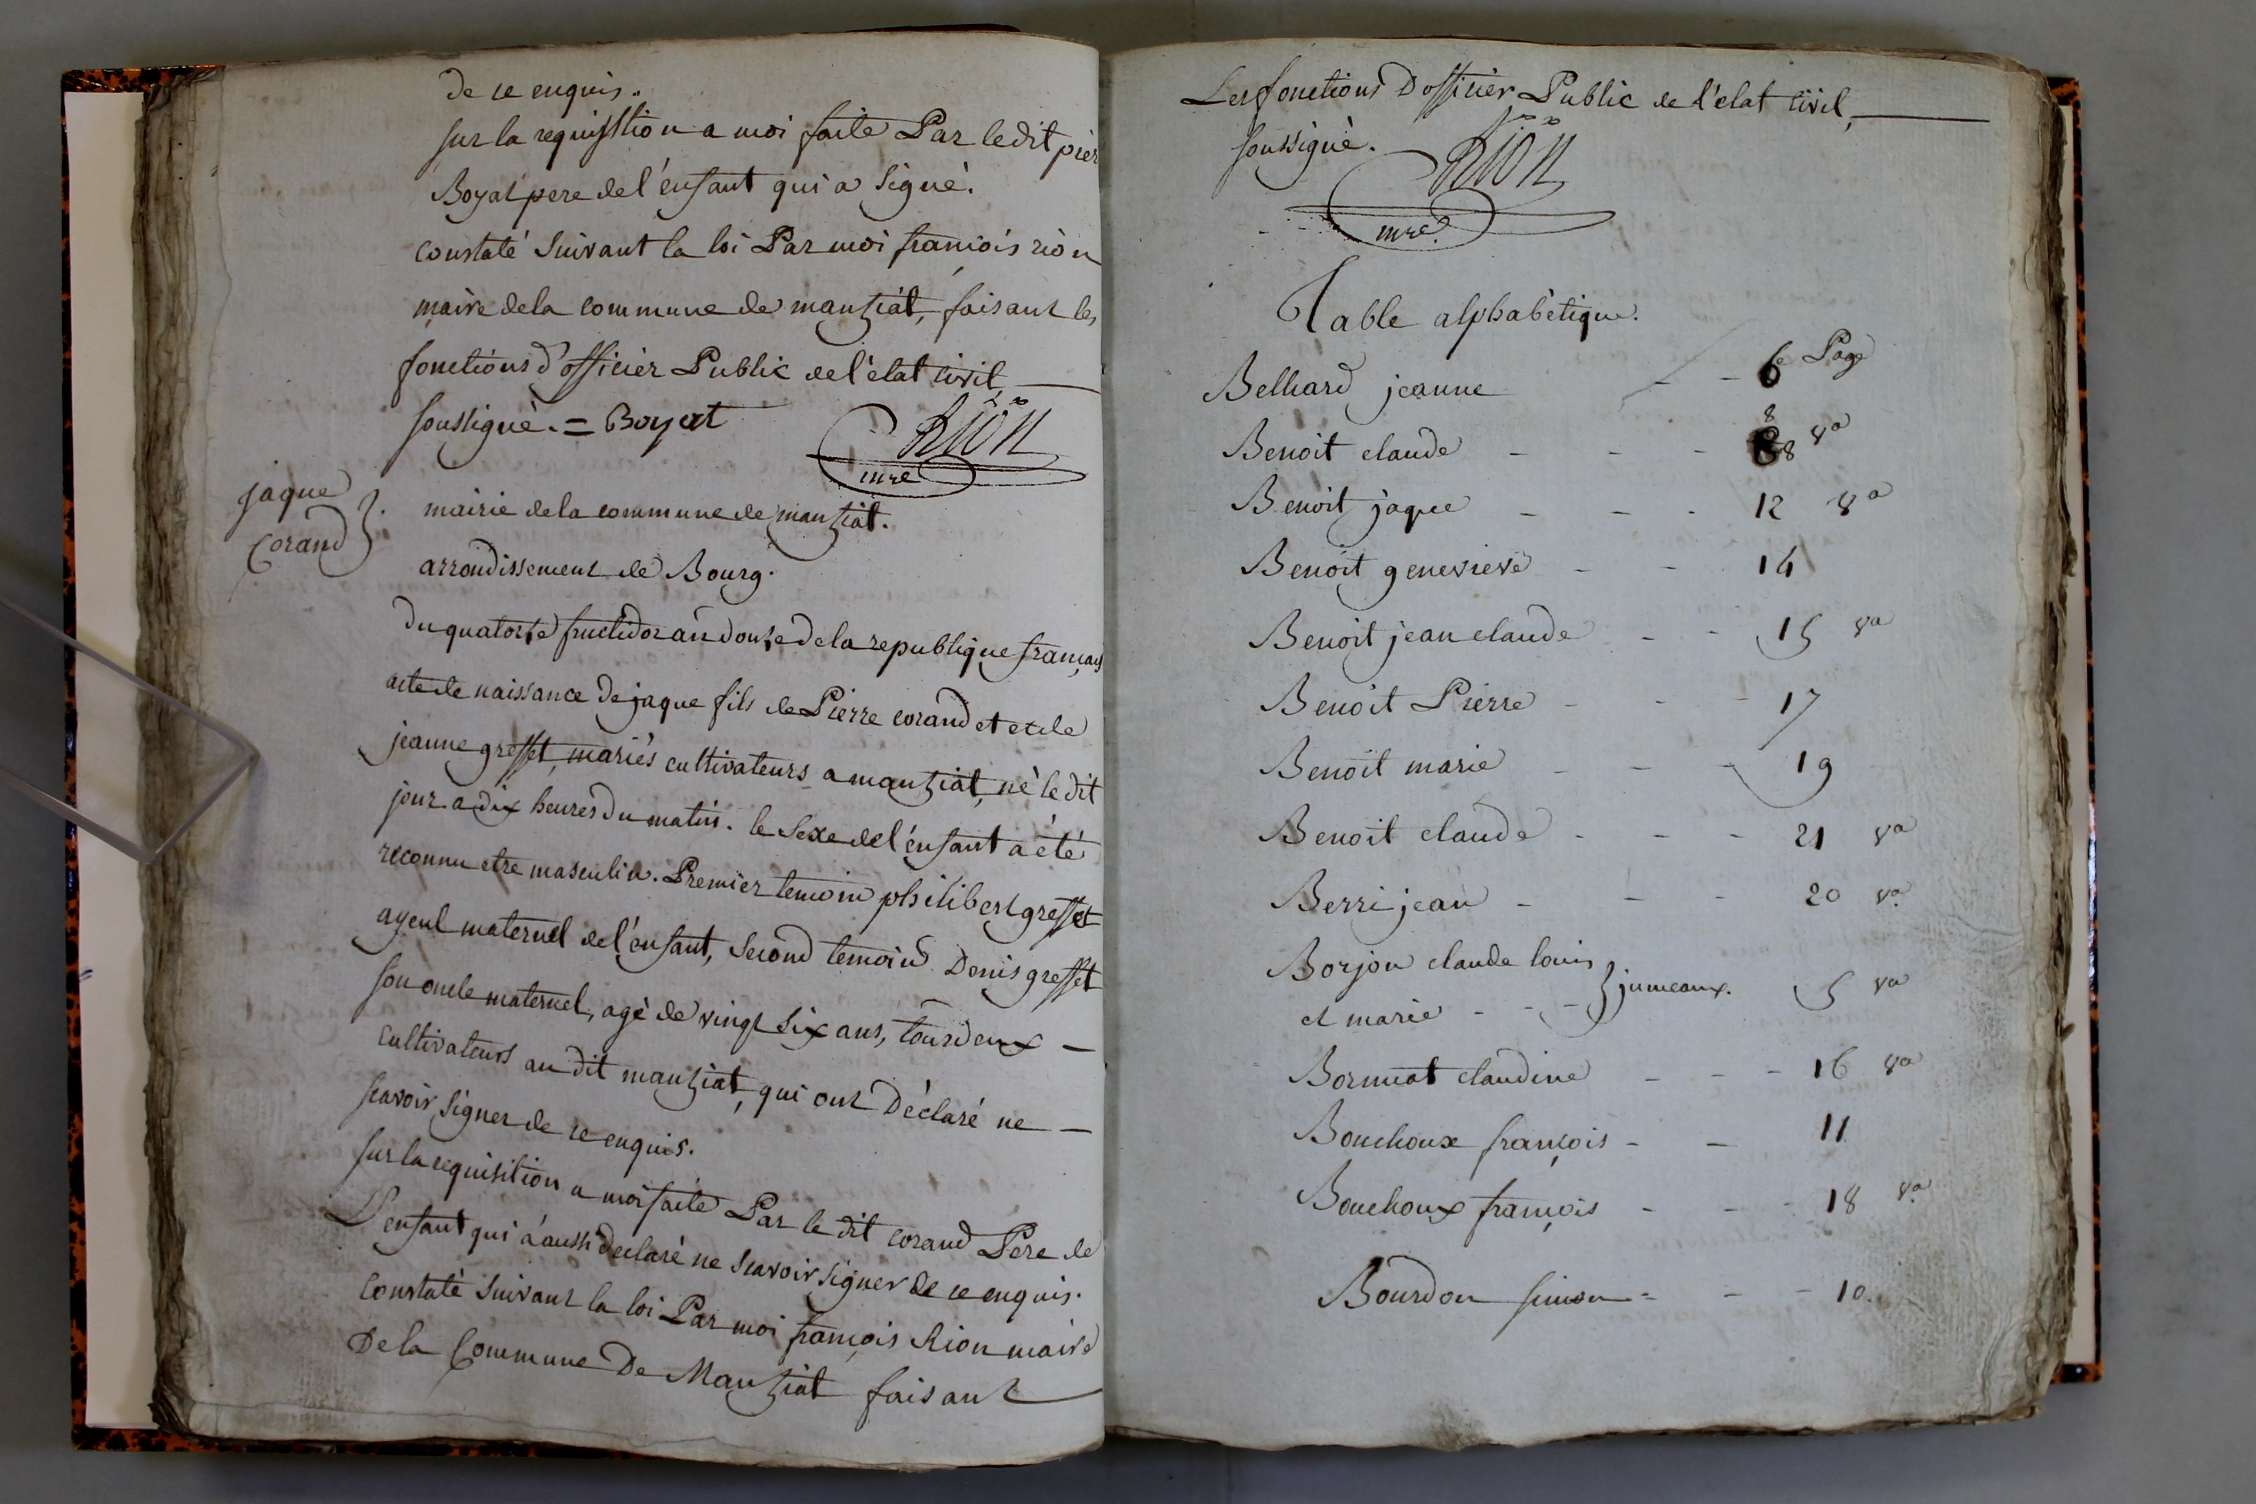 de ce enquis.
sur la requisition a moi faite Par ledit pier
Boyat pere de l'enfant qui a signé.
constaté suivant la loi Par moi francois rion
maire de la commune de manziat, faisant les
fonctions d'officier Public de l'état civil,
soussigné. = Boyat
Rion
mre
jaque
Corand
mairie de la commune de manziat.
arrondissement de Bourg.
du quatorze fructidor an douze de la republique français
acte de naissance de jaque fils de Pierre corand et et de
jeanne greffet, mariés cultivateurs a manziat, né le dit
jour a dix heures du matin. le sexe de l'enfant a été
reconnu etre masculin. Premier temoin philibert greffet
ayeul maternel de l'enfant, second temoin Denis greffet
son oncle maternel, agé de vingt six ans, tous deux
cultivateurs au dit manziat, qui ont Déclaré ne
scavoir signer de ce enquis.
sur la requisition a moi faite Par le dit corand Pere de
L'enfant qui á aussi declaré ne scavoir signer de ce enquis.
Constaté suivant la loi Par moi françois Rion maire
De la Commune De Manziat faisant
Les fonctions D'officier Public de l'état civil,
soussigné.
Rion
mre
Table alphabétique.
Belhard jeanne - - 6e Page
Benoit claude - - - 8 8 vo
Benoit jaque - - - 12 vo
Benoit genevieve - - 14
Benoit jean claude - - 15 vo
Benoit Pierre - - - 17
Benoit marie - - - 19
Benoit claude - - - 21 vo
Berri jean - - - 20 vo
Borjon claude louis
et marie - - - } jumeaux. 5 vo
Bormat claudine - - - 16 vo
Bouchoux françois - - 11
Bouchoux françois - - - 18 vo
Bourdon simon - - - 10.